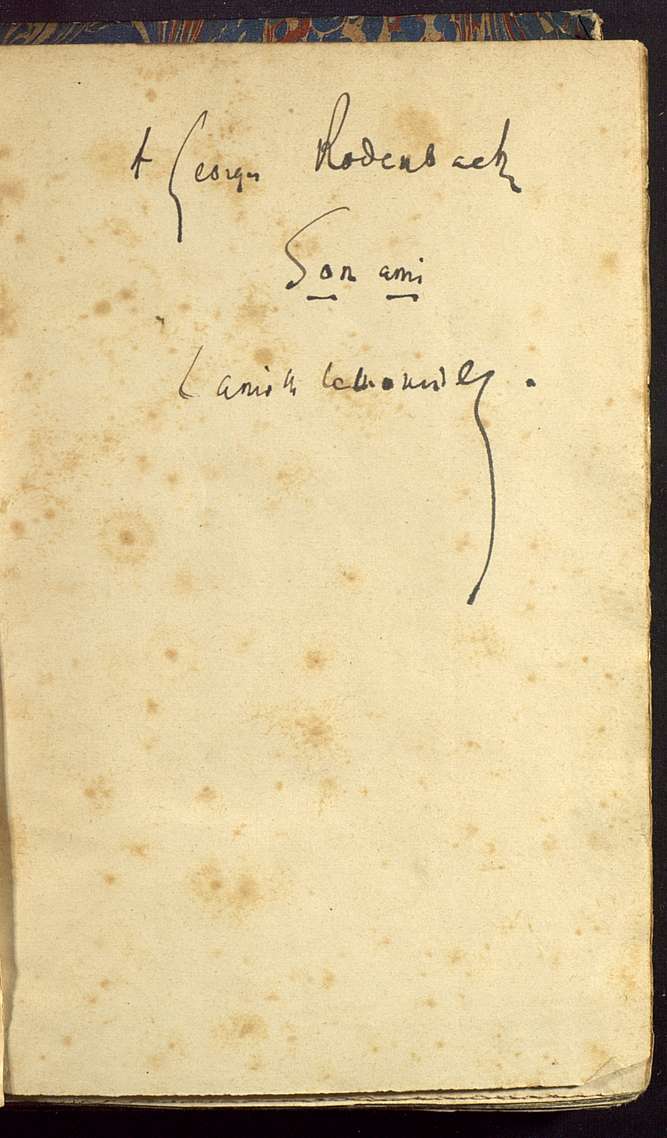 A Georges Rodenbach
Son ami
Camille Lemonnier.